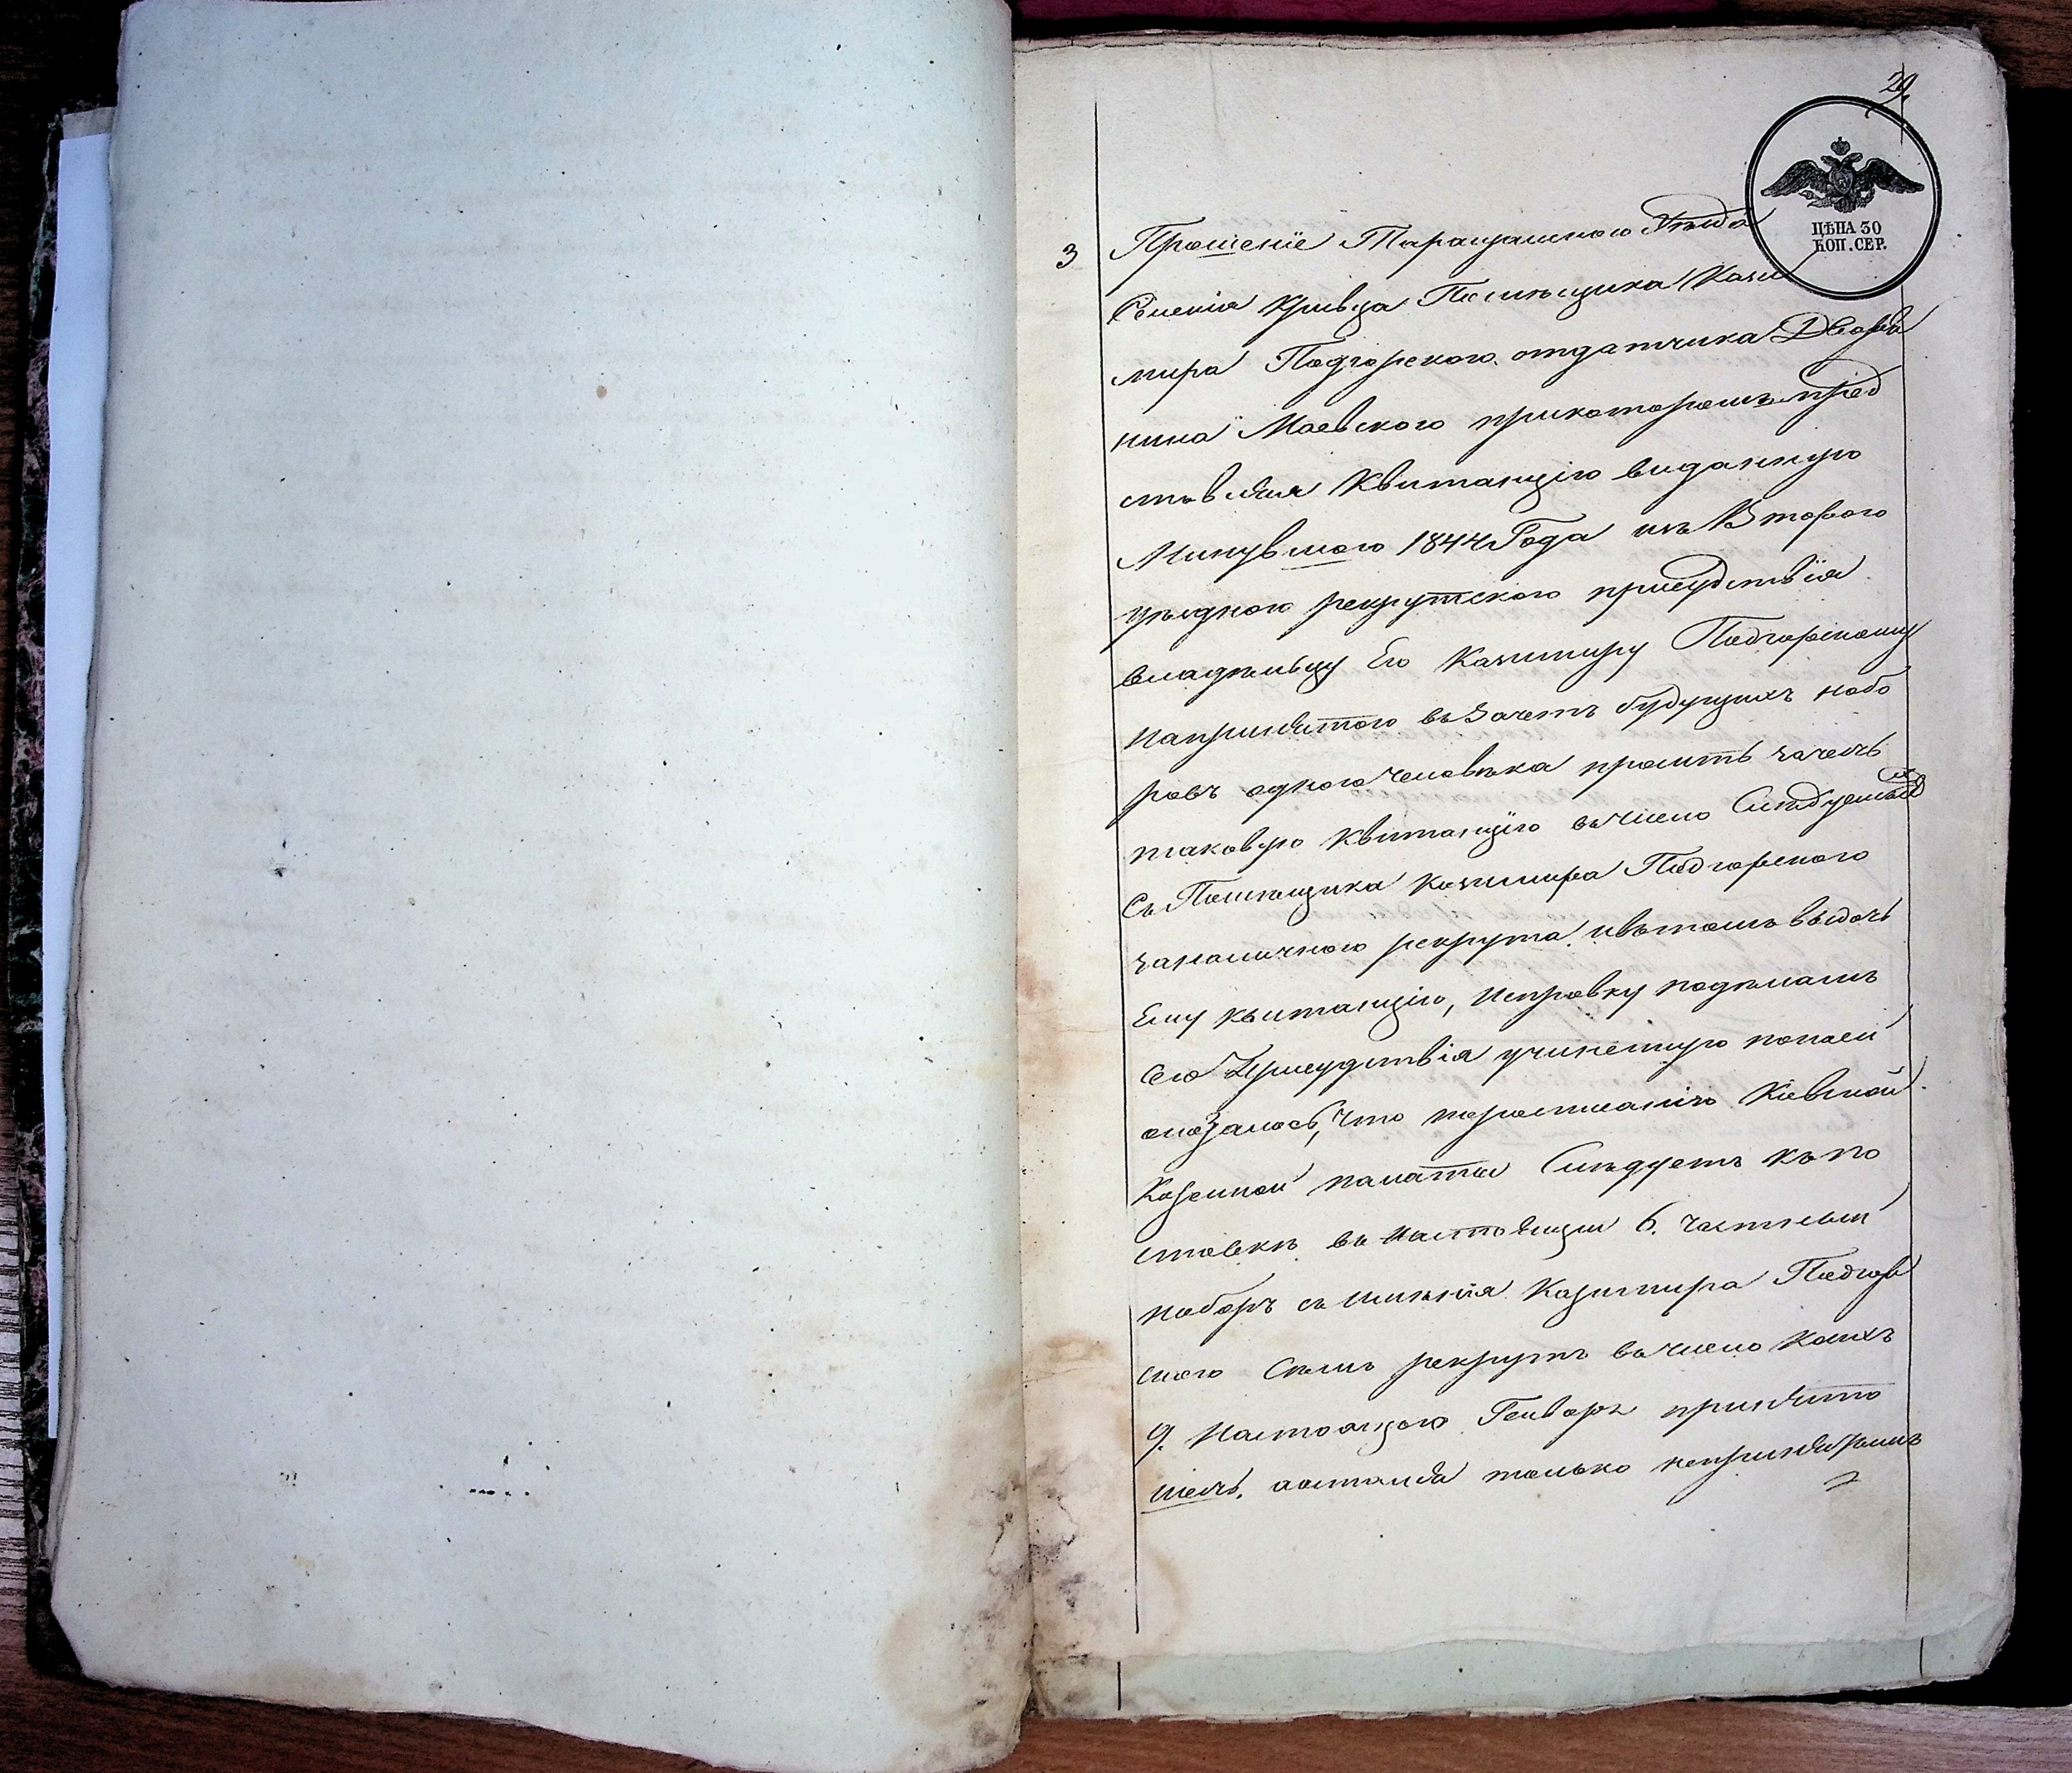 29.
ЦѢНА 30
КОП. СЕР.
3
Прошеніе Таращанского Уѣзда
Селенія Кривца Помѣщика Кази
мира Подгорского отдатчика Дворя
нина Маевского прикоторомъ пред
ставляя Квитанцію виданную
Минувшого 1844 Года изъ Второго
уѣздного рекрутского присудствія
владѣльцу Его Казимиру Подгорскому
напринятого въ Зачетъ будущихъ набо
ровъ одного человѣка проситъ зачесть
таковую Квитанцію въ число Слѣдуемыхъ
Съ Помѣщика Казимира Подгорского
заналичного рекрута, ивътомъ выдать
Ему квитанцію, Исправку подѣламъ
сего Присудствія учиненную
оказалось, что Кіевской
Казенной палаты Слѣдуетъ къ по
ставкѣ въ Настоящій 6. частный
наборъ съ имѣнія Казимира Подгор
ского Семь рекрутъ въ число коихъ
9. Настоящого Генваря принято
шесть, аосталея только непринятымъ